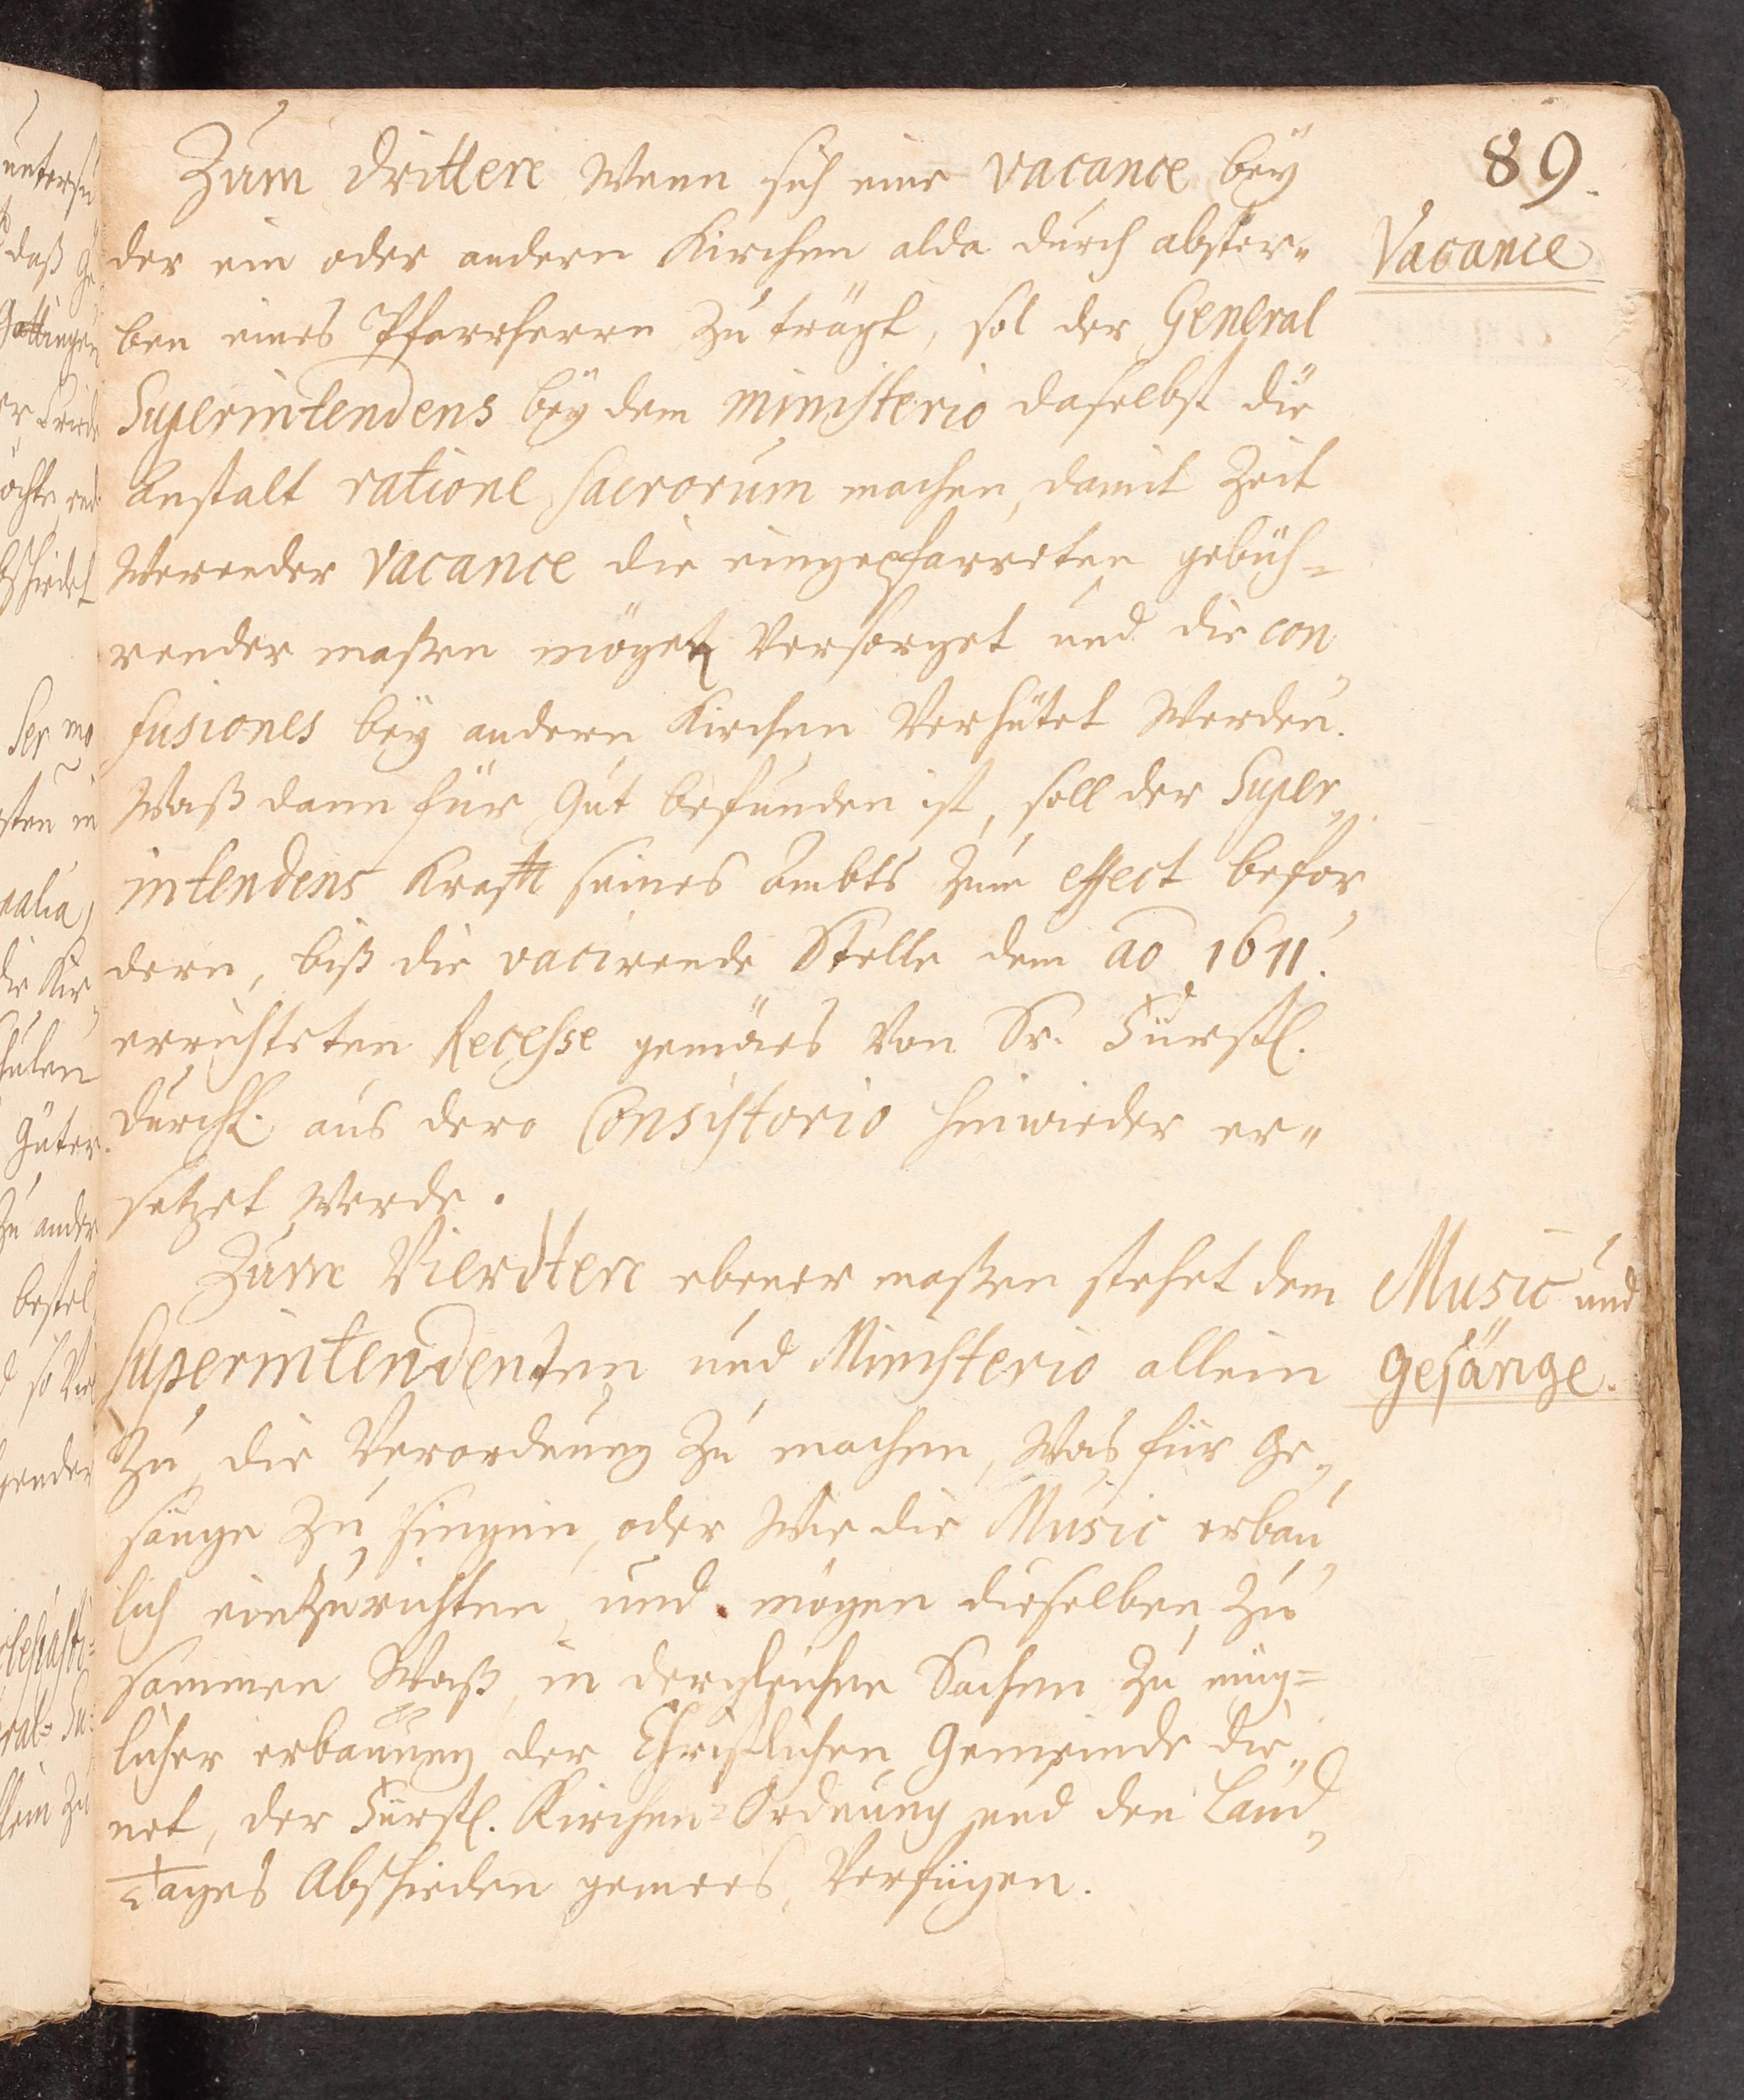 89.
Zum dritten Wenn sich eine vacance bey
der ein oder andern Kirchen alda durch abster„
ben eines Pfarrherrn zu trägt, sol der General
Superintendens bey dem ministerio daselbst die
Anstalt ratione sacrorum machen, damit Zeit
Werender vacance die eingepfarreten gebüh=
render maßen mögen Versorget und die con„
fusiones bey andern Kirchen Verhütet Werden.
Waß dann für Gut befunden ist, soll der Super„
intendens Krafft seines Ambts zum effect befor„
dern, biß die vacirende Stelle dem ao 1611.
errichteten Recesse gemäes Von Sr. Fürstl.
Durchl. aus dero Consistorio hinwieder er„
setzet Werde.
Vacance
Zum Vierdten ebener maßen stehet dem
Superintendenten und Ministerio allein
zu, die Verordnung zu machen, Was für Ge„
sänge zu singen, oder Wie die Music erbau„
lich einzurichten, und mögen dieselben zu
sammen Waß in dergleichen Sachen zu müg=
licher erbauung der Christlichen Gemeinde die„
net, der Fürstl. Kirchen=Ordnung und den Land„
Tages Abschieden gemees, Verfügen.
Music und
Gesänge.